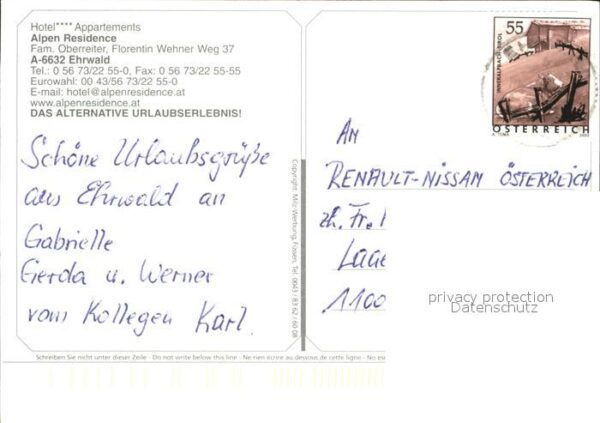 Hotel**** Appartements
Alpen Residence
Fam. Oberreiter, Florentin Wehner Weg 37
A-6632 Ehrwald
Tel.: 0 56 73/22 55-0, Fax: 0 56 73/22 55-55
Eurowahl: 00 43/56 73/22 55-0
E-mail: hotel@alpenresidence.at
www.alpenresidence.at
DAS ALTERNATIVE URLAUBSERLEBNIS!
Schöne Urlaubsgrüße
aus Ehrwald an
Gabrielle
Gerda u. Werner
vom Kollegen Karl.
Copyright: Milz-Werbung, Füssen, Tel.
55
INNERALPBACH-TIROL
ÖSTERREICH
AN
RENAULT-NISSAN ÖSTERREICH
zh. Fr.
Laae
1100
privacy protection
Datenschutz
Schreiben Sie nicht unter dieser Zeile - Do not write below this line - Ne rien écrire au dessous de cette ligne - No esc